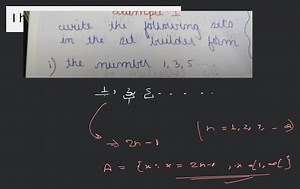 example 1
write the following sets
in the set builder form
i) the number 1, 3, 5 ....
1, 3, 5 - - - - - -
⇒ 2n-1
A = { x : x = 2n-1